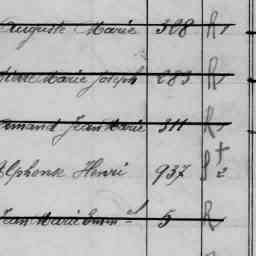 Auguste Marie 308 R
Pierre Marie Joseph 283 R
Armand Jean Marie 311 R
Alphonse Henri 937 2
Jean Marie 5 R